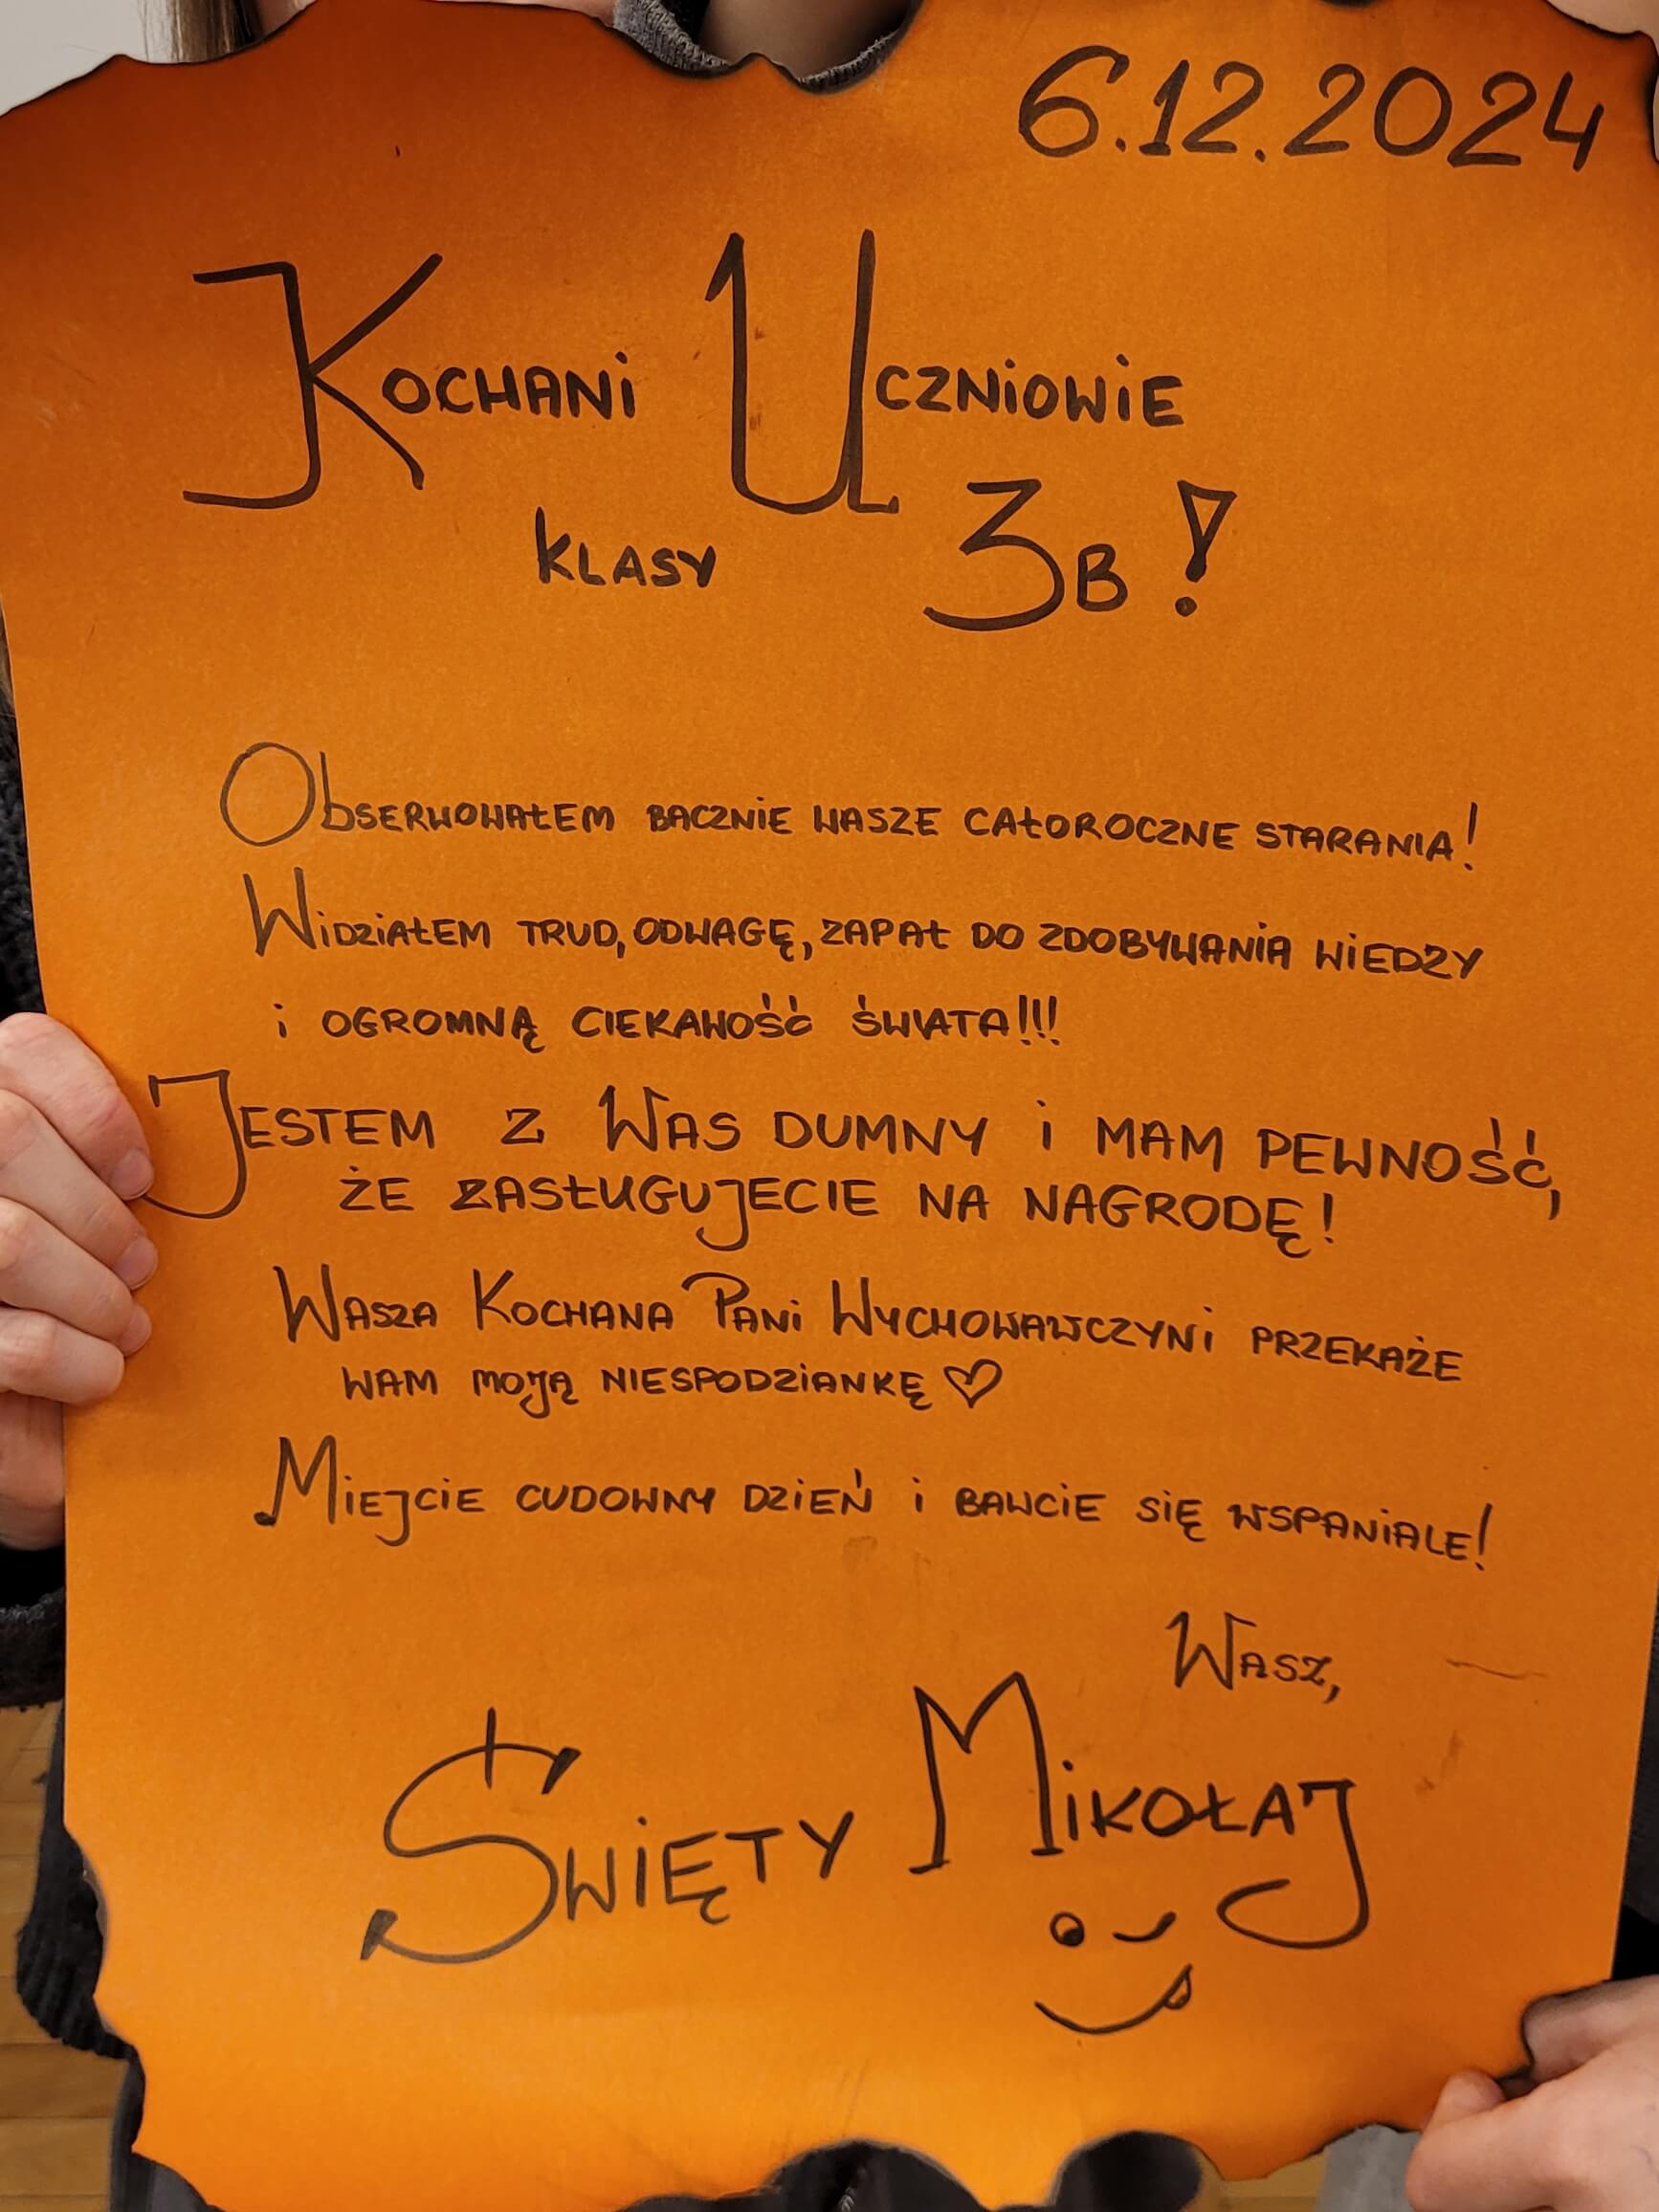 6.12.2024
KOCHANI UCZNIOWIE
KLASY 3B!
OBSERWOWAŁEM BACZNIE WASZE CAŁOROCZNE STARANIA!
WIDZIAŁEM TRUD, ODWAGĘ, ZAPAŁ DO ZDOBYWANIA WIEDZY
i OGROMNĄ CIEKAWOŚĆ ŚWIATA!!!
JESTEM Z WAS DUMNY i MAM PEWNOŚĆ,
ŻE ZASŁUGUJECIE NA NAGRODĘ!
WASZA KOCHANA PANi WYCHOWAWCZYNi PRZEKAŻE
WAM MOJĄ NIESPODZiANKĘ ♡
MIEJCIE CUDOWNY DZIEŃ i BAWCIE SIĘ WSPANIALE!
WASZ,
ŚWIĘTY MIKOŁAJ